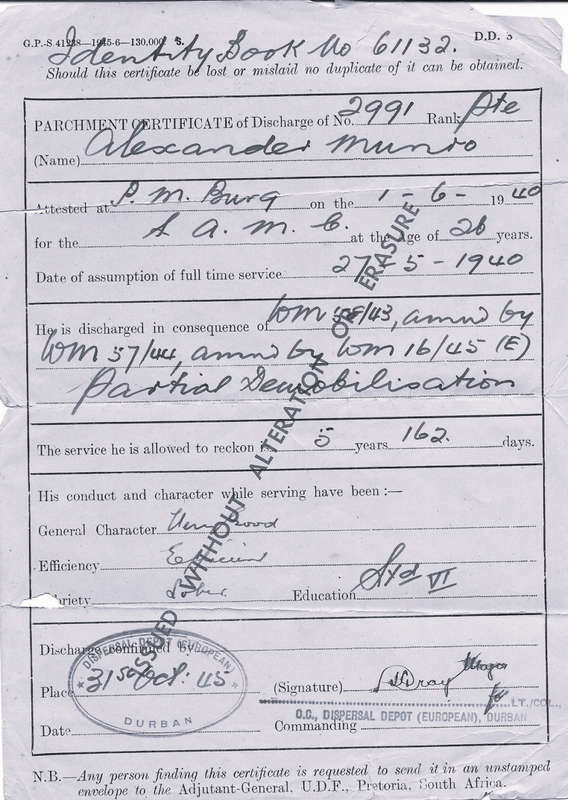 G.P.-S.41238—1945-6—130,000. S. D.D. 5
Identity Book No 61132.
Should this certificate be lost or mislaid no duplicate of it can be obtained.
PARCHMENT CERTIFICATE of Discharge of No. 2991 Rank Pte
(Name) Alexander Munro
Attested at P. M. Burg on the 1-6- 1940
for the S A. M. C. at the Age of 26 years.
Date of assumption of full time service 27-5-1940
He is discharged in consequence of WM /43, amnd by
WM 57/44, amnd by WM 16/45 (E)
Partial Demobilisation
The service he is allowed to reckon is 5 years 162. days.
His conduct and character while serving have been :—
General Character Very Good
Efficiency Efficient
Sobriety Sober Education Std VI
Discharge confirmed by
DISPERSAL DEPOT (EUROPEAN)
Place 31 Oct. 45 (Signature) Gray Major
for LT./COL.,
DURBAN O.C., DISPERSAL DEPOT (EUROPEAN), DURBAN
Date Commanding
ISSUED WITHOUT ALTERATION OR ERASURE
N.B.—Any person finding this certificate is requested to send it in an unstamped
envelope to the Adjutant-General, U.D.F., Pretoria, South Africa.